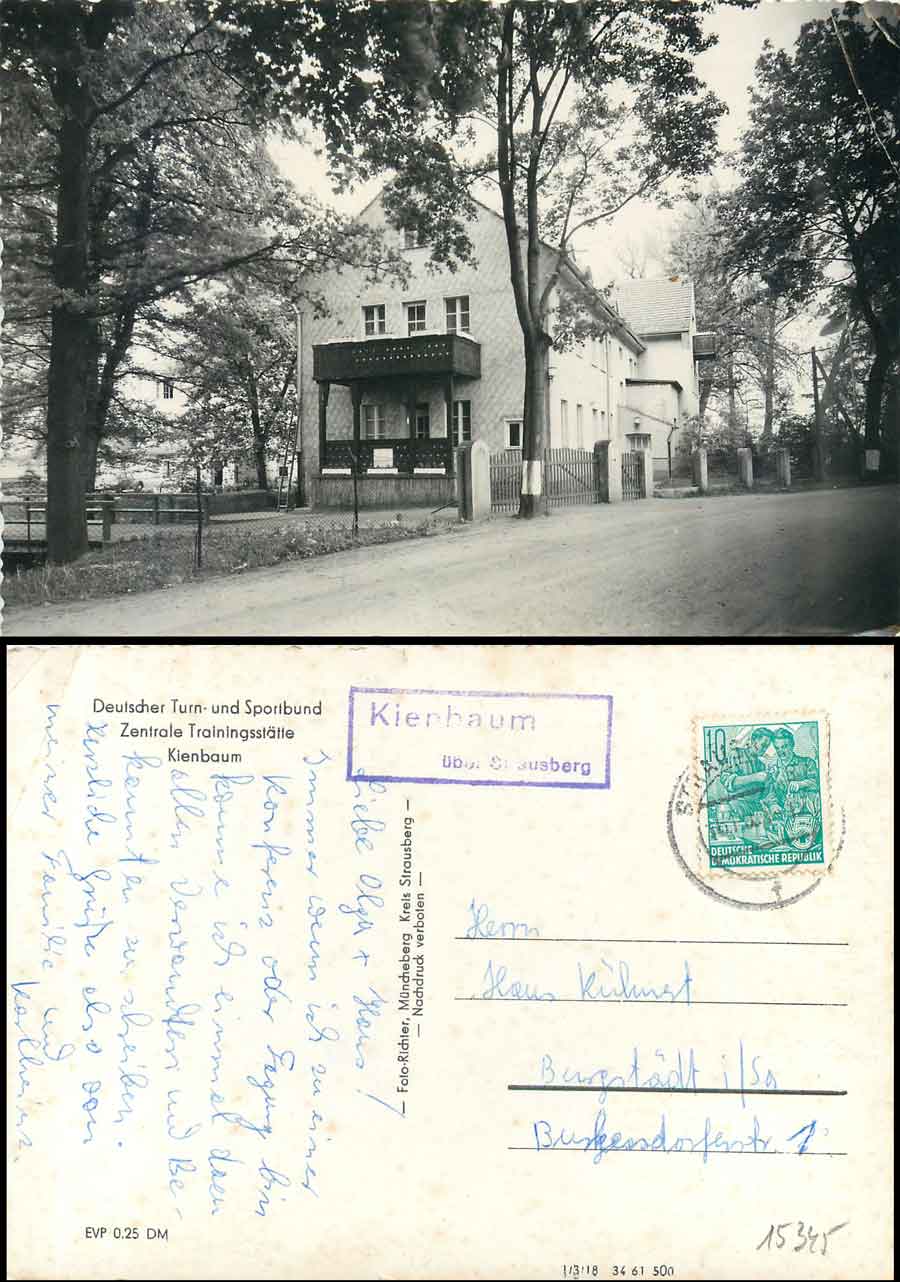 Deutscher Turn- und Sportbund
Zentrale Trainingsstätte
Kienbaum
Kienbaum
über Strausberg
10
DEUTSCHE
DEMOKRATISCHE REPUBLIK
Liebe Olga + Hans!
Immer wenn ich zu einer
Konferenz oder Tagung bin
komme ich einmal dazu
allen Verwandten und Be-
kannten zu schreiben.
Herzliche Grüße also von
meiner Familie und
Karlheinz.
— Foto-Richter, Müncheberg Kreis Strausberg —
— Nachdruck verboten —
Herrn
Hans
Burgstädt i/Sa
EVP 0.25 DM
1/3/18 34 61 500
15345